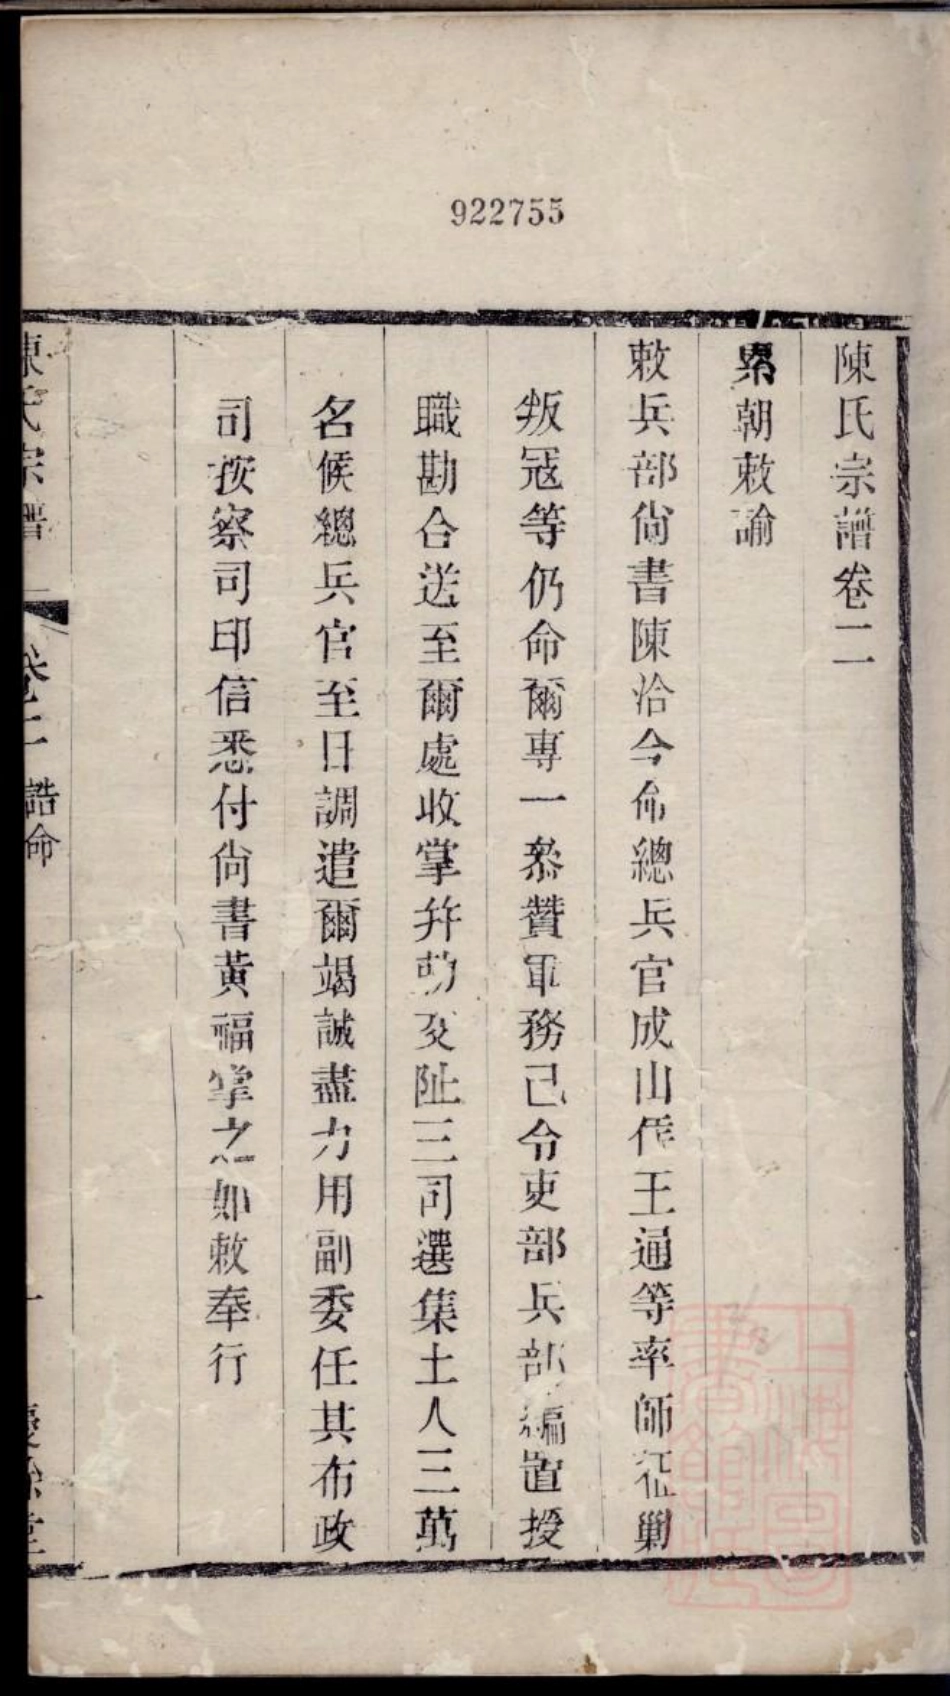 922755
陳氏宗譜卷二
累朝敕諭
敕兵部尙書陳洽今命總兵官成山侯王通等率師征勦
叛寇等仍命爾專一叅贊軍務已令吏部兵部編置授
職勘合送至爾處收掌幷勅交阯三司選集土人三萬
名候總兵官至日調遣爾竭誠盡力用副委任其布政
司按察司印信悉付尙書黃福掌之如敕奉行
陳氏宗譜 卷二 誥命 一